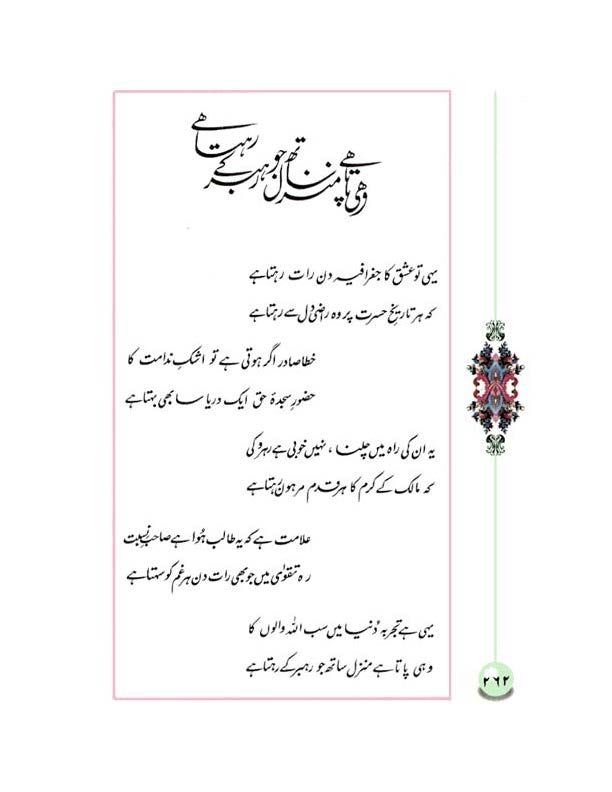 وہی پاتا ہے منزل ساتھ جو رہبر کے رہتا ہے
یہی تو عشق کا جغرافیہ دن رات رہتا ہے
کہ ہر تاریخِ حسرت پر وہ راضی دل سے رہتا ہے
خطا صادر اگر ہوتی ہے تو اشکِ ندامت کا
حضورِ سجدۂ حق ایک دریا سا بھی بہتا ہے
یہ ان کی راہ میں چلنا ، نہیں خوبی ہے رہرو کی
کہ مالک کے کرم کا ہر قدم مرہون رہتا ہے
علامت ہے کہ یہ طالب ہُوا ہے صاحبِ نسبت
رہ تقویٰ میں جو بھی رات دن ہر غم کو سہتا ہے
یہی ہے تجربہ دُنیا میں سب اللہ والوں کا
وہی پاتا ہے منزل ساتھ جو رہبر کے رہتا ہے
۲۶۲